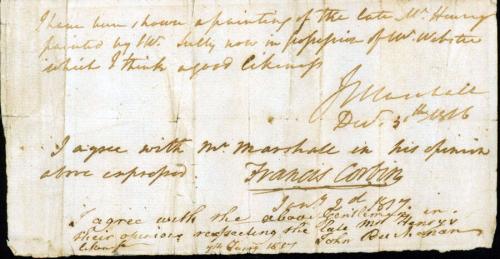 I have been shown a painting of the late Mr. Henry
painted by Mr. Sully now in possession of Mr. Webster
which I think a good likeness
J Marshall
Dec. 30th 1816
I agree with Mr Marshall in his opinion
above expressed Francis Corbin
Jany 2d 1817.
I agree with the above Gentlemen in
their opinions respecting the late Mr Henrys
likeness John Buchanan
4th Jany 1817